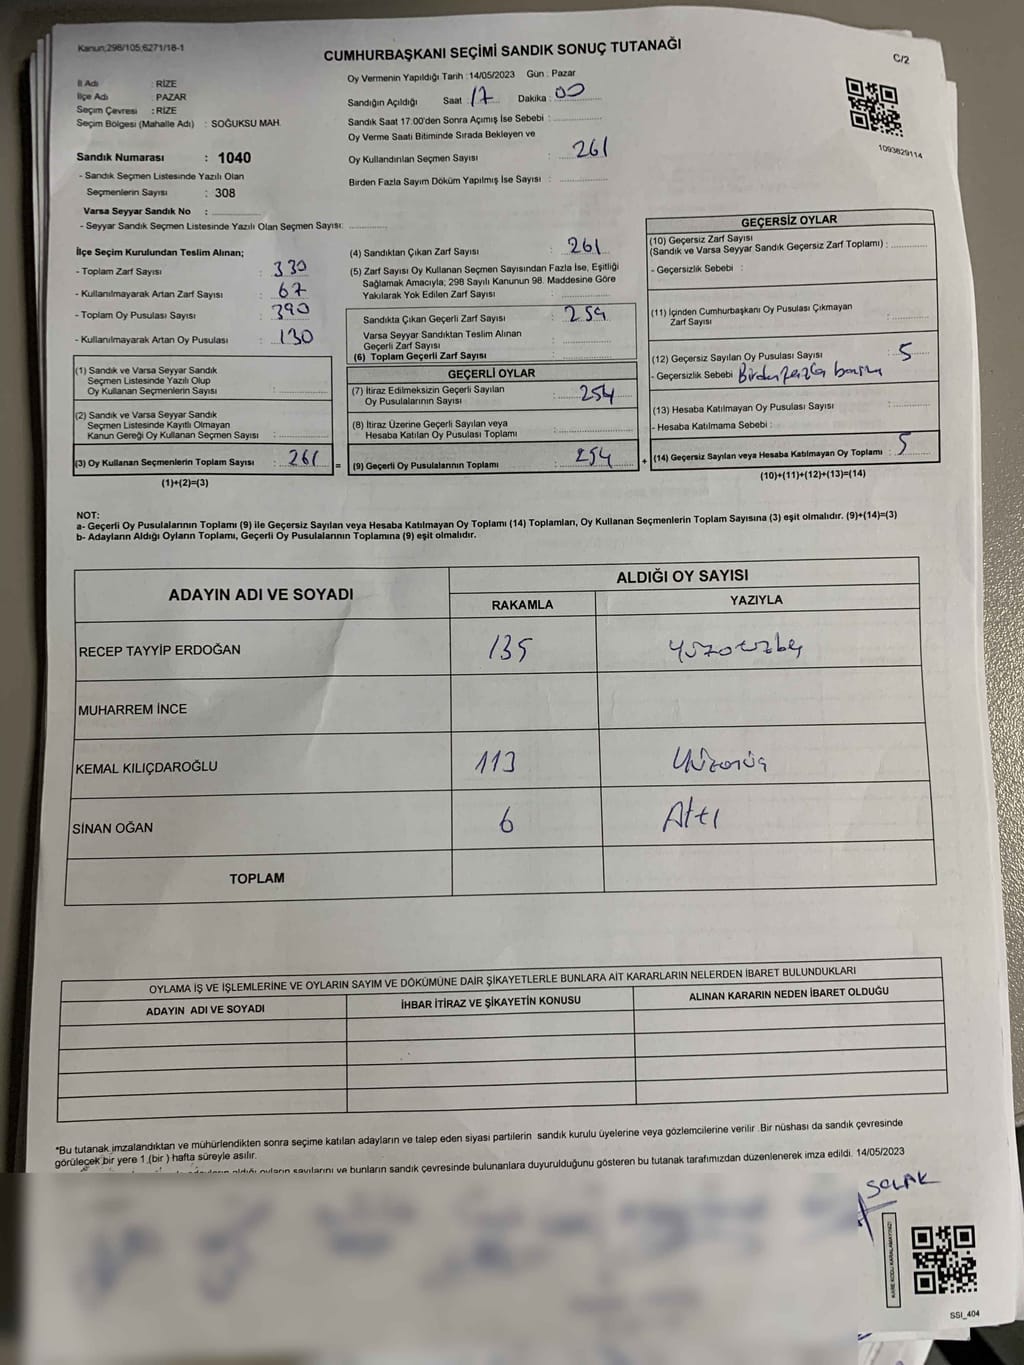 Kanun;298/105;6271/18-1
CUMHURBAŞKANI SEÇİMİ SANDIK SONUÇ TUTANAĞI
C/2
İl Adı : RİZE
İlçe Adı : PAZAR
Seçim Çevresi : RİZE
Seçim Bölgesi (Mahalle Adı) : SOĞUKSU MAH.
Sandık Numarası : 1040
- Sandık Seçmen Listesinde Yazılı Olan
Seçmenlerin Sayısı : 308
Varsa Seyyar Sandık No :
- Seyyar Sandık Seçmen Listesinde Yazılı Olan Seçmen Sayısı:
Oy Vermenin Yapıldığı Tarih : 14/05/2023 Gün : Pazar
Sandığın Açıldığı Saat : 17 Dakika : 00
Sandık Saat 17.00'den Sonra Açımış İse Sebebi :
Oy Verme Saati Bitiminde Sırada Bekleyen ve
Oy Kullandırılan Seçmen Sayısı : 261
Birden Fazla Sayım Döküm Yapılmış İse Sayısı :
1093829114
İlçe Seçim Kurulundan Teslim Alınan;
- Toplam Zarf Sayısı : 330
- Kullanılmayarak Artan Zarf Sayısı : 67
- Toplam Oy Pusulası Sayısı : 390
- Kullanılmayarak Artan Oy Pusulası : 130
(1) Sandık ve Varsa Seyyar Sandık
Seçmen Listesinde Yazılı Olup
Oy Kullanan Seçmenlerin Sayısı :
(2) Sandık ve Varsa Seyyar Sandık
Seçmen Listesinde Kayıtlı Olmayan
Kanun Gereği Oy Kullanan Seçmen Sayısı :
(3) Oy Kullanan Seçmenlerin Toplam Sayısı : 261
(1)+(2)=(3)
=
(4) Sandıktan Çıkan Zarf Sayısı : 261
(5) Zarf Sayısı Oy Kullanan Seçmen Sayısından Fazla İse, Eşitliği
Sağlamak Amacıyla; 298 Sayılı Kanunun 98. Maddesine Göre
Yakılarak Yok Edilen Zarf Sayısı :
Sandıkta Çıkan Geçerli Zarf Sayısı : 259
Varsa Seyyar Sandıktan Teslim Alınan
Geçerli Zarf Sayısı :
(6) Toplam Geçerli Zarf Sayısı :
GEÇERLİ OYLAR
(7) İtiraz Edilmeksizin Geçerli Sayılan
Oy Pusulalarının Sayısı : 254
(8) İtiraz Üzerine Geçerli Sayılan veya
Hesaba Katılan Oy Pusulası Toplamı :
(9) Geçerli Oy Pusulalarının Toplamı : 254
+
GEÇERSİZ OYLAR
(10) Geçersiz Zarf Sayısı
(Sandık ve Varsa Seyyar Sandık Geçersiz Zarf Toplamı) :
- Geçersizlik Sebebi :
(11) İçinden Cumhurbaşkanı Oy Pusulası Çıkmayan
Zarf Sayısı :
(12) Geçersiz Sayılan Oy Pusulası Sayısı : 5
- Geçersizlik Sebebi : Birden fazla basım
(13) Hesaba Katılmayan Oy Pusulası Sayısı :
- Hesaba Katılmama Sebebi :
(14) Geçersiz Sayılan veya Hesaba Katılmayan Oy Toplamı : 5
(10)+(11)+(12)+(13)=(14)
NOT:
a- Geçerli Oy Pusulalarının Toplamı (9) ile Geçersiz Sayılan veya Hesaba Katılmayan Oy Toplamı (14) Toplamları, Oy Kullanan Seçmenlerin Toplam Sayısına (3) eşit olmalıdır. (9)+(14)=(3)
b- Adayların Aldığı Oyların Toplamı, Geçerli Oy Pusulalarının Toplamına (9) eşit olmalıdır.
ADAYIN ADI VE SOYADI
ALDIĞI OY SAYISI
RAKAMLA YAZIYLA
RECEP TAYYİP ERDOĞAN 135 Yüzotuzbeş
MUHARREM İNCE
KEMAL KILIÇDAROĞLU 113 Yüzonüç
SİNAN OĞAN 6 Altı
TOPLAM
OYLAMA İŞ VE İŞLEMLERİNE VE OYLARIN SAYIM VE DÖKÜMÜNE DAİR ŞİKAYETLERLE BUNLARA AİT KARARLARIN NELERDEN İBARET BULUNDUKLARI
ADAYIN ADI VE SOYADI İHBAR İTİRAZ VE ŞİKAYETİN KONUSU ALINAN KARARIN NEDEN İBARET OLDUĞU
*Bu tutanak imzalandıktan ve mühürlendikten sonra seçime katılan adayların ve talep eden siyasi partilerin sandık kurulu üyelerine veya gözlemcilerine verilir .Bir nüshası da sandık çevresinde
görülecek bir yere 1 (bir ) hafta süreyle asılır.
aldığı oyların sayılarını ve bunların sandık çevresinde bulunanlara duyurulduğunu gösteren bu tutanak tarafımızdan düzenlenerek imza edildi. 14/05/2023
SOLAK
KARE KODU KARALAMAYINIZ!
SSI_404